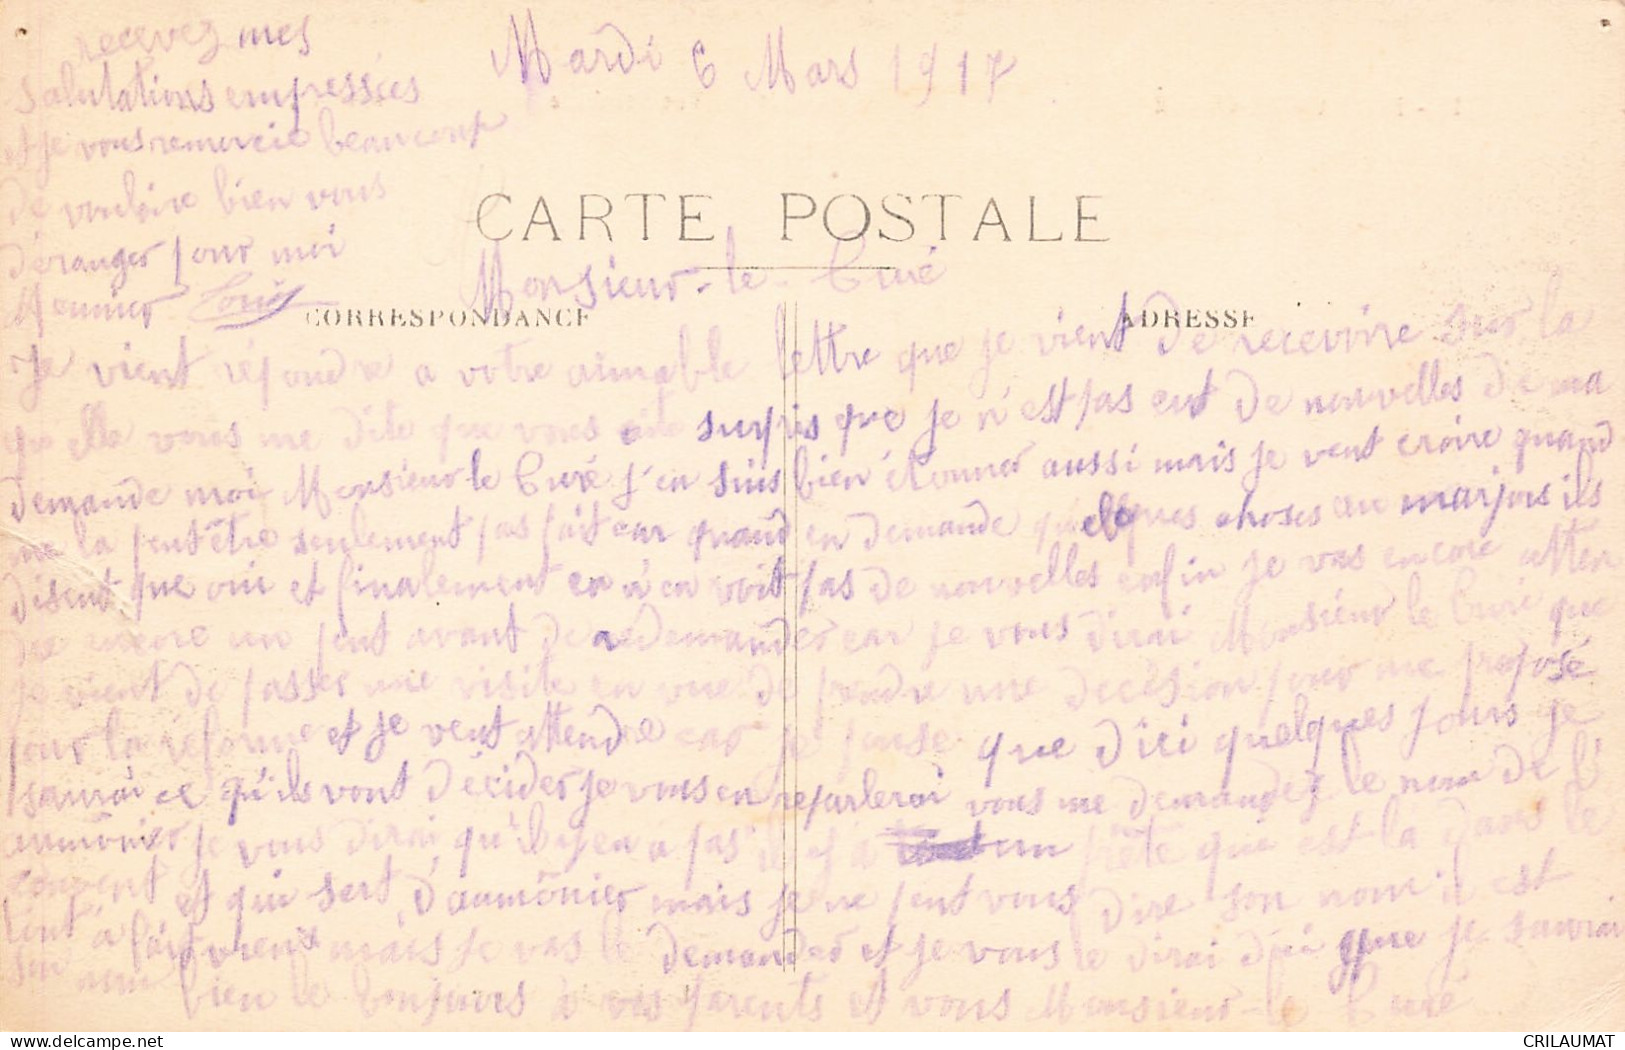 Mardi 6 Mars 1917
CARTE POSTALE
CORRESPONDANCE
ADRESSE
Monsieur le Curé
Je vient répondre a votre aimable lettre que je vient de recevoire sur la
qu elle vous me dite que vous surpris que je n'est pas eut de nouvelles de ma
demande moi Monsieur le Curé j'en suis bien étonner aussi mais je vent croire quand
me la peut être seulement pas fait car quand en demande quelques choses au marjors ils
disent que oui et finalement en n'en voit pas de nouvelles enfin je vas encore atten
dre encore un peut avant de redemander car je vous dirai Monsieur le Curé que
je vient de passer une visite en vue de prendre une decision pour me proposé
pour la réforme et je vent attendre car je pense que d'ici quelques jours je
saurai ce qu'ils vont décider je vous en reparlerai vous me demandez le nom de l'
aumônier je vous dirai qu'il y en a pas il y a un prête que est la dans le
couvent et qui sert d'aumônier mais je ne peut vous dire son nom il est
mais je vas le demander et je vous le dirai d'ici que je saurai
son nom bien le bonjours à vos parents et vous Monsieur le Curé
recevez mes
salutations empressées
et je vous remercie beaucoup
de vouloire bien vous
déranger pour moi
Mounier Louis
CRILAUMAT